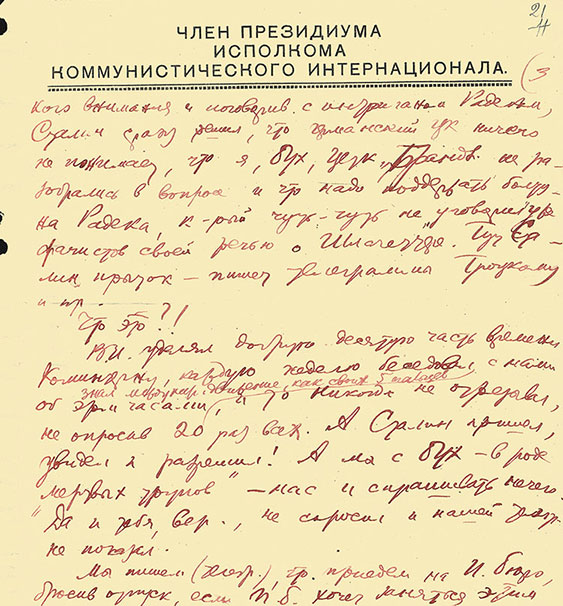 21
ЧЛЕН ПРЕЗИДИУМА
ИСПОЛКОМА
КОММУНИСТИЧЕСКОГО ИНТЕРНАЦИОНАЛА.
(3
кого внимания и поговорив с интриганом Радеком,
Сталин сразу решил, что германский цк ничего
не понимает, что я, Бух, Цетк, Брандл. не ра-
зобрались в вопросе и что надо поддержать болту-
на Радека, к-рый чуть-чуть не уговорил
фашистов своей речью о Шлагетере. Тут Ста-
лин прыток — пишет телеграммы Троцкому
и пр.
Что это?!
В.И. уделял добрую десятую часть времени
Коминтерну, каждую неделю беседовал с нами
об этом часами, знал междунар. движение, как своих 5 пальцев, и то никогда не отрезывал,
не опросив 20 раз всех. А Сталин пришел,
увидел и разрешил! А мы с Бух — в роде
"мертвых трупов" — нас и спрашивать нечего.
Да и тебя, вер., не спросил и нашей телегр.
не показал.
Мы пишем (телегр.), что приедем на П. бюро,
бросив отпуск, если П.б. хочет заняться этим